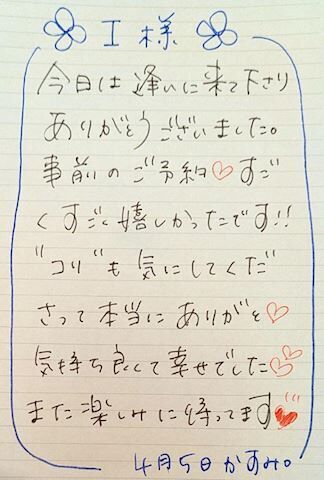 I様
今日は逢いに来て下さり
ありがとうございました。
事前のご予約♡すご
くすごく嬉しかったです!!
"コリ"も気にしてくだ
さって本当にありがと♡
気持ち良くて幸せでした♡♡
また楽しみに待ってます♥
4月5日かすみ。